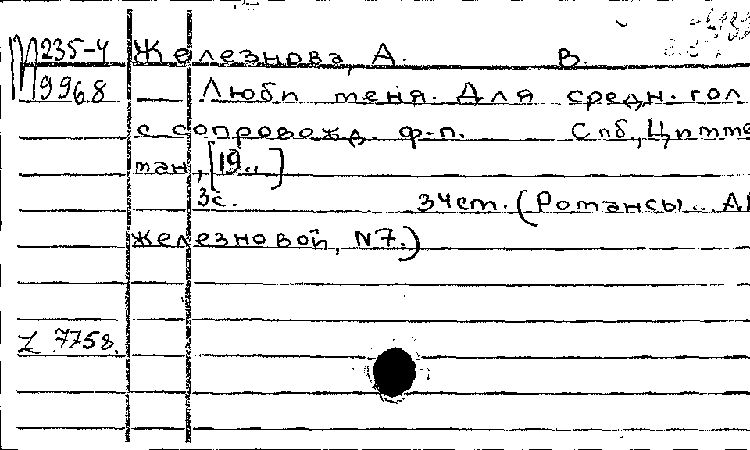 М235-4 Железнова, А. В.
9968 Люби меня. Для средн. гол
с сопровожд. ф-п. Спб., Циmme
ман, [19..]
3с. 34см. (Романсы..
Железновой, N7.)
Z 7758.